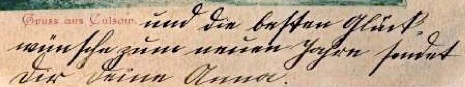 Gruss aus Culsow. und die besten Glück-
wünsche zum neuen Jahre sendet
Dir Deine Anna.